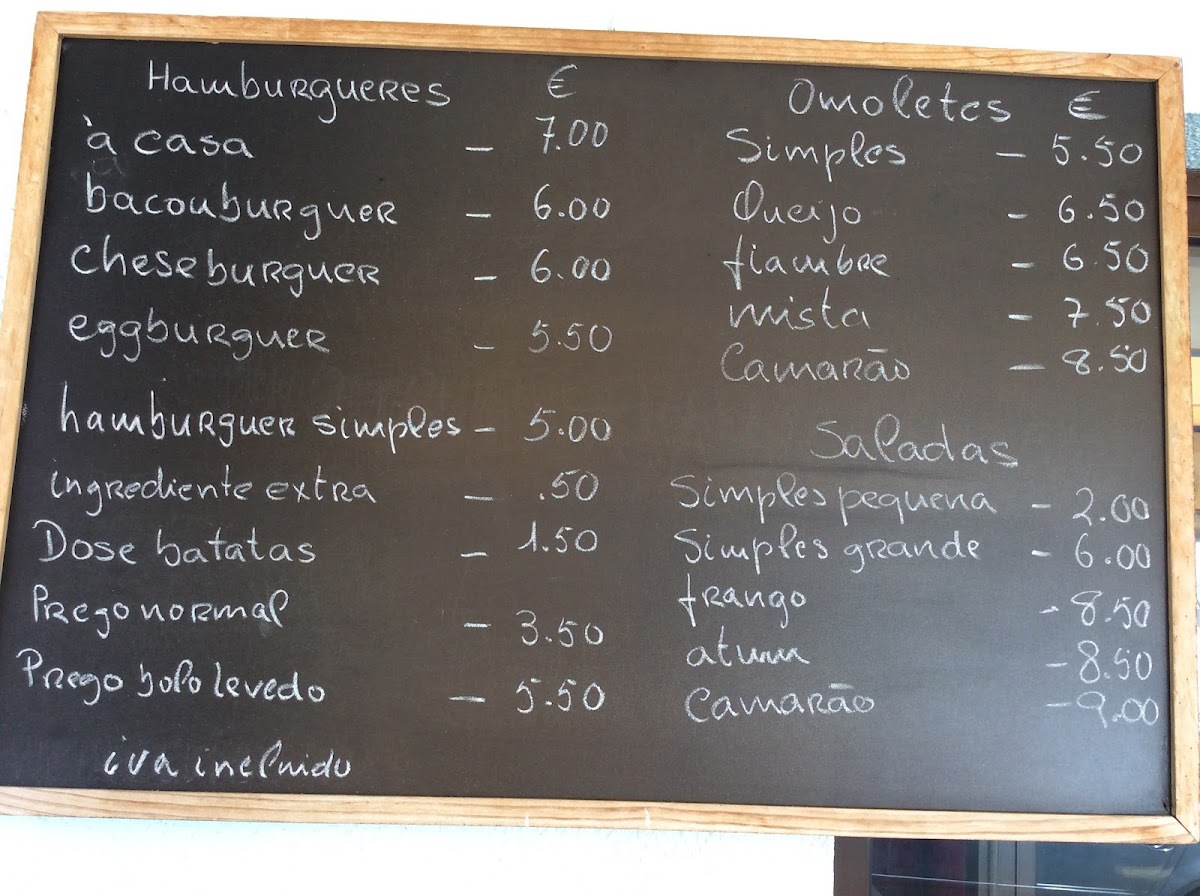 Hamburgueres €
à casa - 7.00
bacouburguer - 6.00
cheseburguer - 6.00
eggburguer - 5.50
hamburguer simples - 5.00
ingrediente extra - .50
Dose batatas - 1.50
Prego normal - 3.50
Prego bolo levedo - 5.50
iva incluido
Omoletes €
Simples - 5.50
Queijo - 6.50
fiambre - 6.50
mista - 7.50
Camarão - 8.50
Saladas
Simples pequena - 2.00
Simples grande - 6.00
frango - 8.50
atum - 8.50
Camarão - 9.00